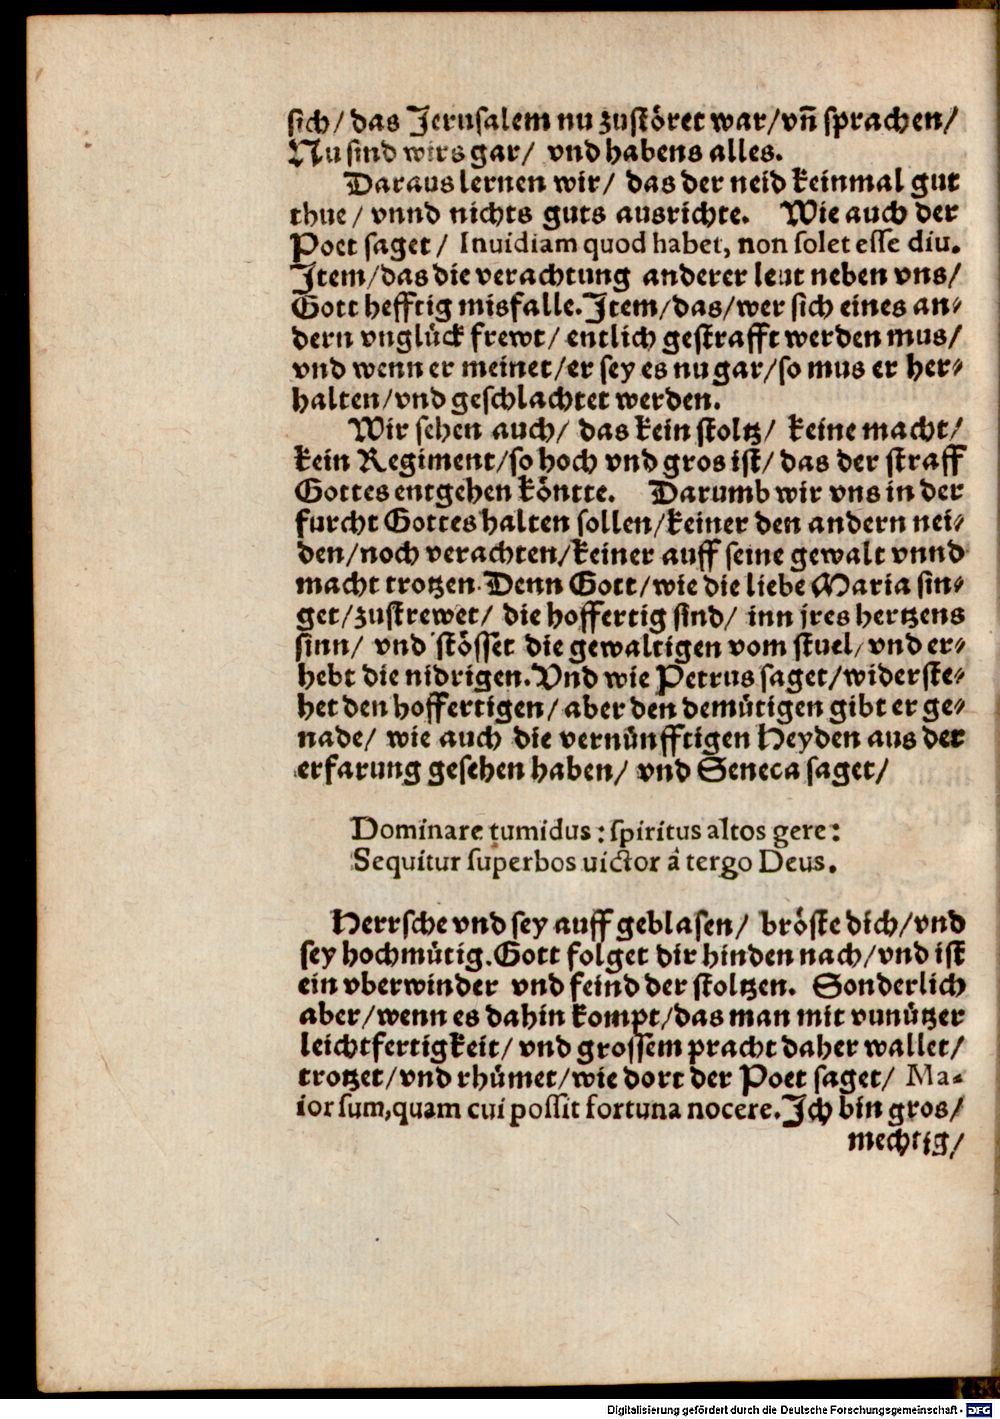 sich/ das Jerusalem nu zustöret war/vñ sprachen/
Nu sind wirs gar/ vnd habens alles.
Daraus lernen wir/ das der neid keinmal gut
thue/ vnnd nichts guts ausrichte. Wie auch der
Poet saget/ Inuidiam quod habet, non solet esse diu.
Item/das die verachtung anderer leut neben vns/
Gott hefftig misfalle. Item/das/wer sich eines an-
dern vnglück frewt/ entlich gestrafft werden mus/
vnd wenn er meinet/er sey es nu gar/so mus er her-
halten/vnd geschlachtet werden.
Wir sehen auch/ das kein stoltz/ keine macht/
kein Regiment/so hoch vnd gros ist/ das der straff
Gottes entgehen köntte. Darumb wir vns in der
furcht Gottes halten sollen/keiner den andern nei-
den/noch verachten/keiner auff seine gewalt vnnd
macht trotzen. Denn Gott/wie die liebe Maria sin-
get/zustrewet/ die hoffertig sind/ inn jres hertzens
sinn/ vnd stösset die gewaltigen vom stuel/ vnd er-
hebt die nidrigen. Vnd wie Petrus saget/widerste-
het den hoffertigen/ aber den demütigen gibt er ge-
nade/ wie auch die vernünfftigen Heyden aus der
erfarung gesehen haben/ vnd Seneca saget/
Dominare tumidus: spiritus altos gere:
Sequitur superbos uictor â tergo Deus.
Herrsche vnd sey auff geblasen/ bröste dich/vnd
sey hochmütig. Gott folget dir hinden nach/vnd ist
ein vberwinder vnd feind der stoltzen. Sonderlich
aber/wenn es dahin kompt/das man mit vunützer
leichtfertigkeit/ vnd grossem pracht daher wallet/
trotzet/vnd rhümet/wie dort der Poet saget/ Ma-
ior sum, quam cui possit fortuna nocere. Ich bin gros/
mechtig/
Digitalisierung gefördert durch die Deutsche Forschungsgemeinschaft - DFG